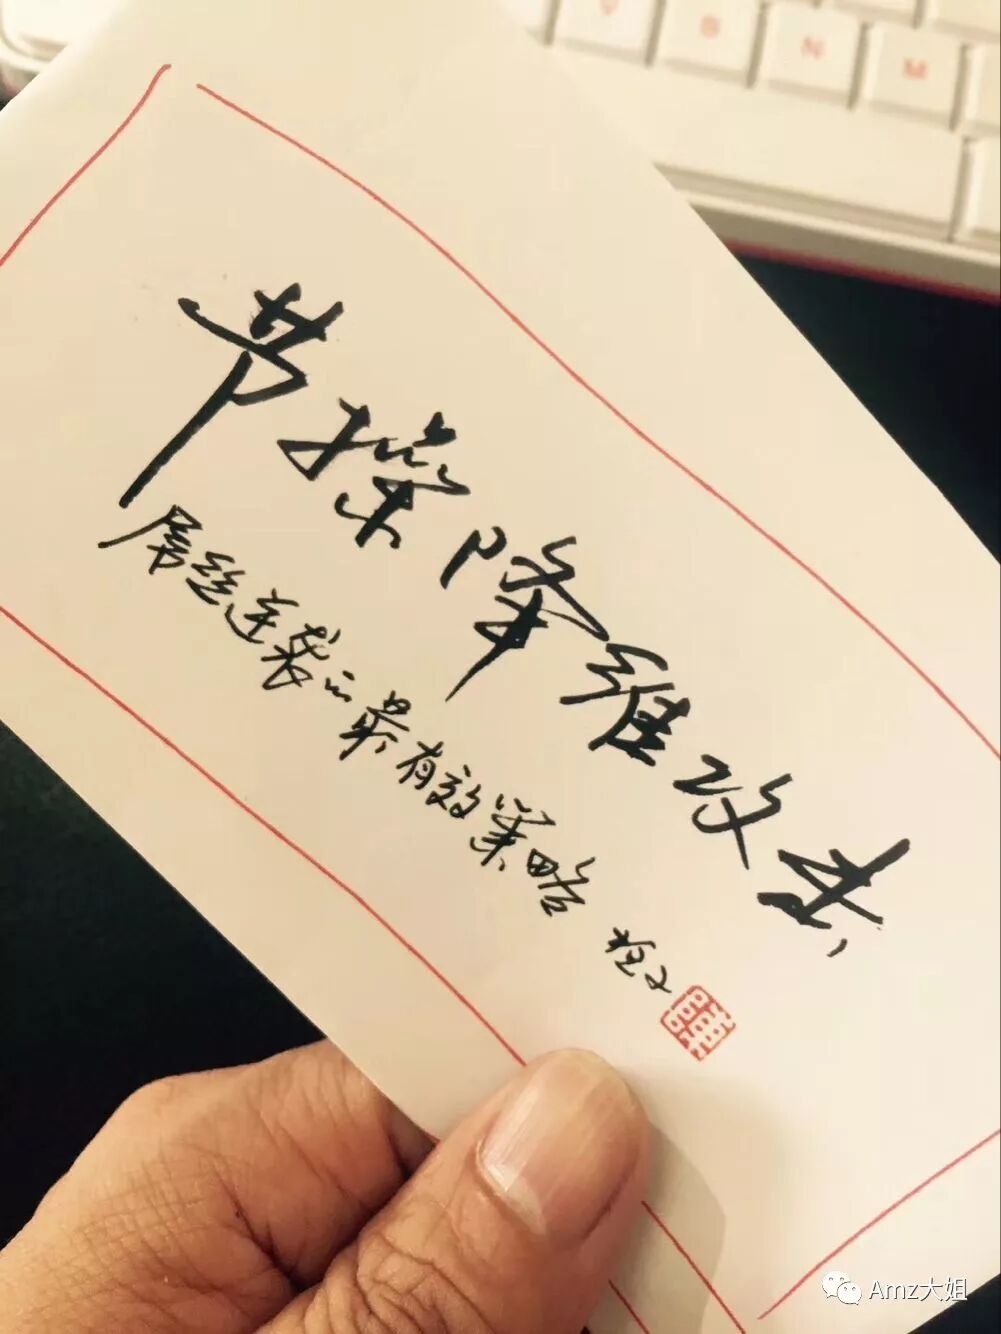 V B N M
节操降维攻击
屌丝逆袭之最有效策略
Amz大姐